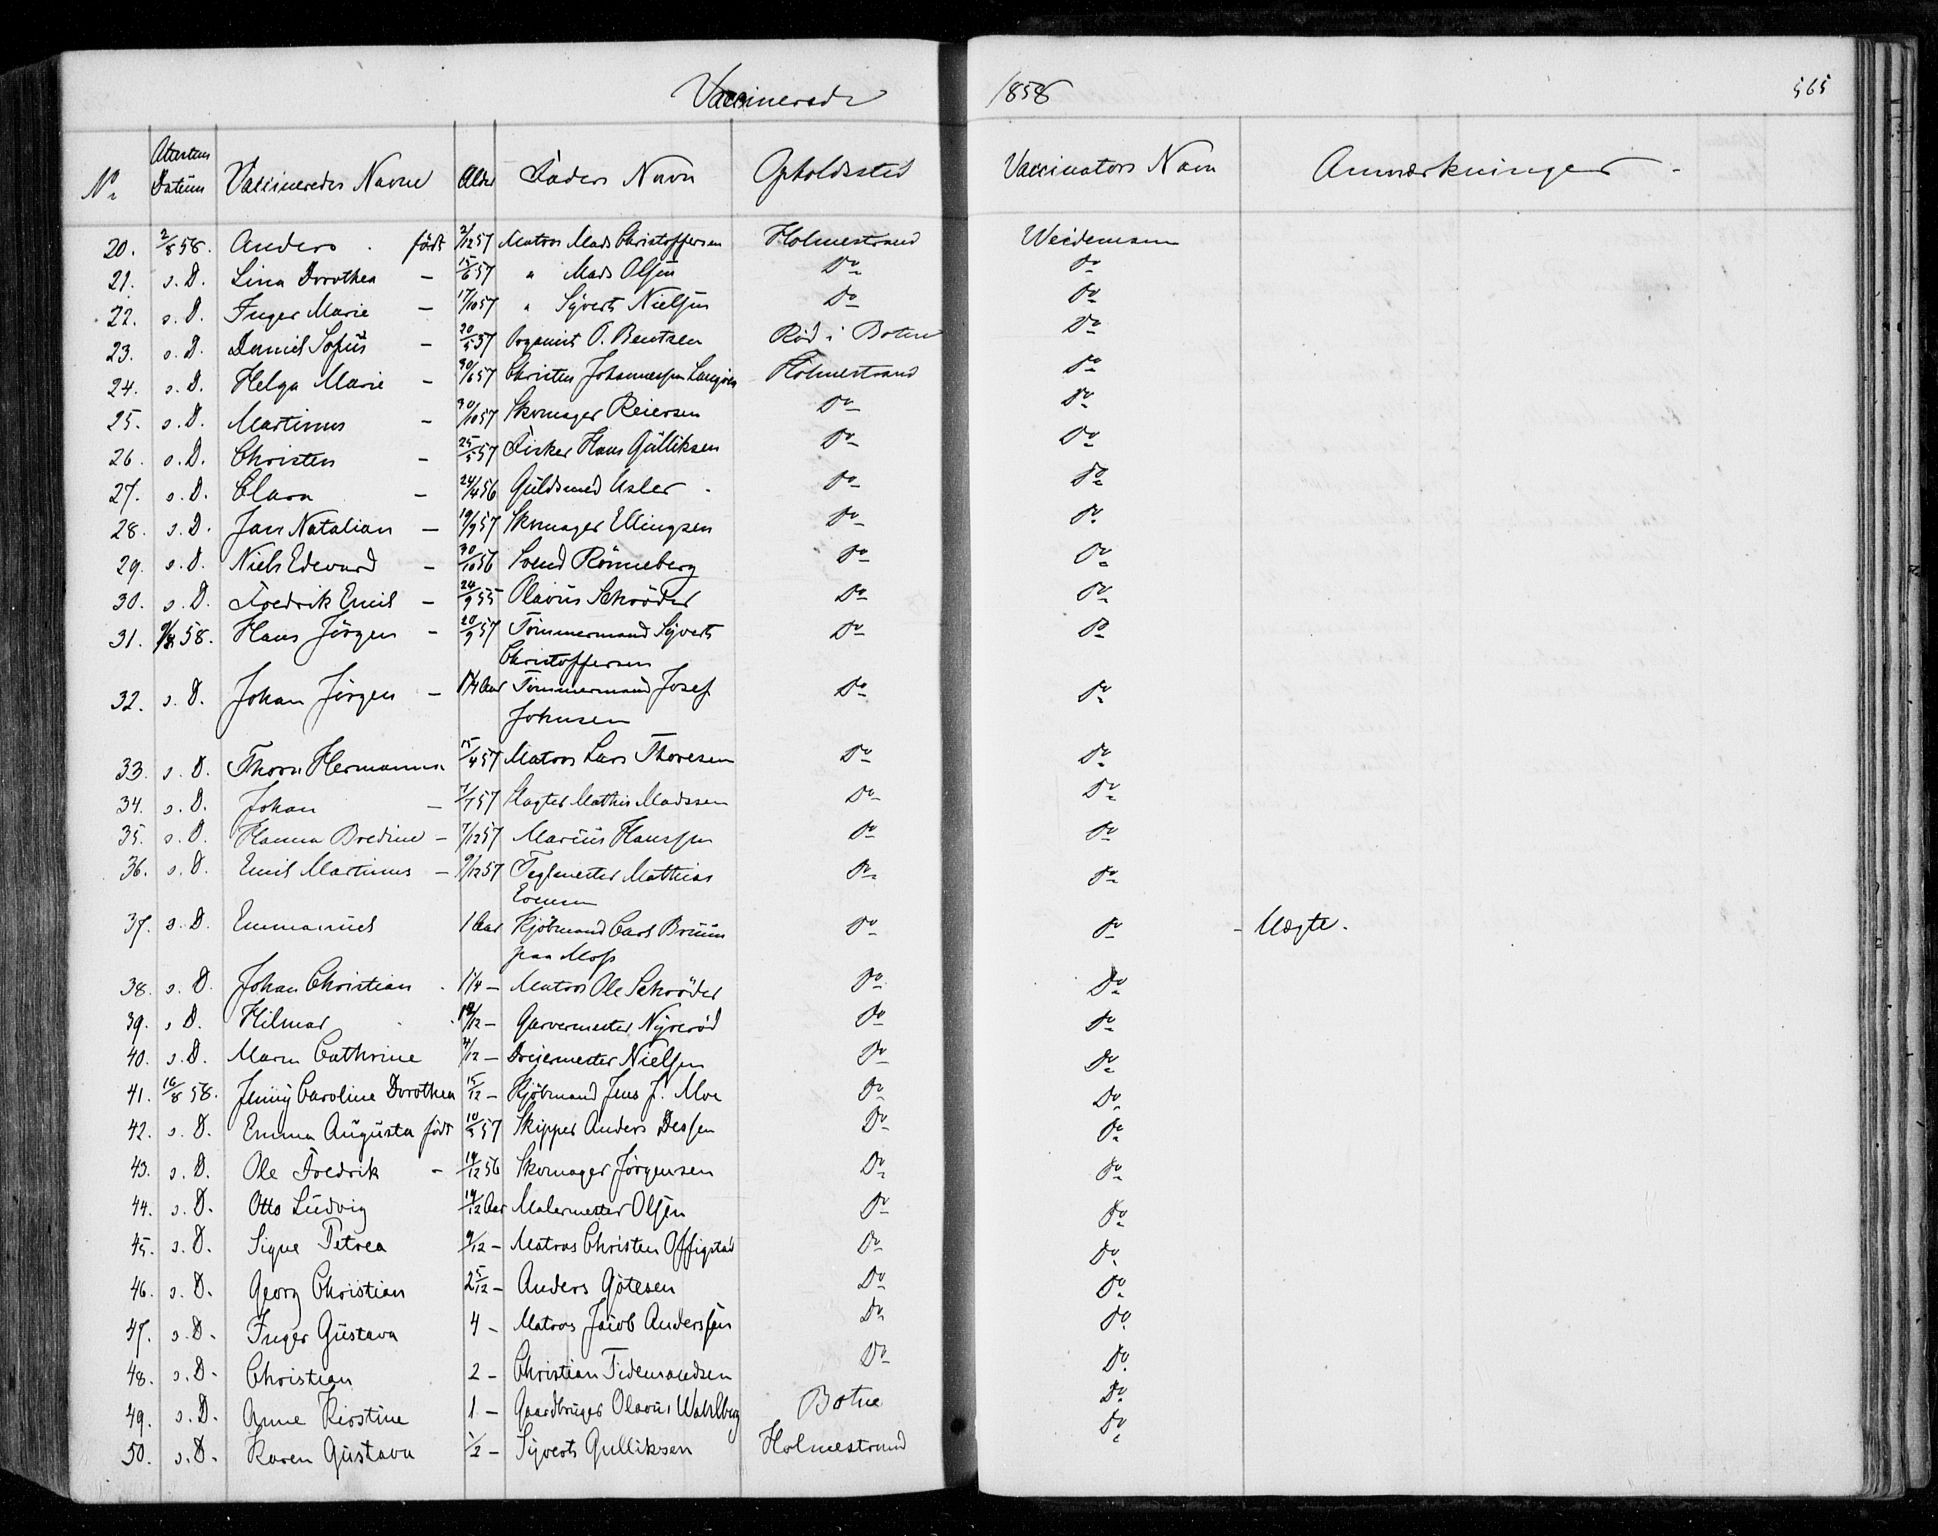 Vaccinerede 1858 565
No Attestens Datum Vaccineredes Navne Alder Faders Navn Opholdssted Vaccinators Navn Anmærkninger
20. 2/8 58. Anders . født 2/12 57 Matros Mads Christoffersen Holmestrand Weidemann
21. s. D. Lina Dorothea - 15/6 57 " Mads Olsen Do Do
22. s. D. Inger Marie - 17/10 57 " Syvert Nielsen Do Do
23. s. D. Daniel Sofus - 20/5 57 Organist O. Bentzen Rød i Botne Do
24. s. D. Helga Marie - 30/6 57 Christen Johannessen Holmestrand Do
25. s. D. Martinus - 30/10 57 Skomager Reiersen Do Do
26. s. D. Christen - 25/5 57 Fisker Hans Gulliksen Do Do
27. s. D. Clara - 24/4 56 Guldsmed Asler Do Do
28. s. D. Jan Natalian - 19/9 57 Skomager Ellingsen Do Do
29. s. D. Niels Edevard - 30/10 56 Svend Rönneberg Do Do
30. s. D. Fredrik Emil - 24/9 55 Olavus Schrøder Do Do
31. 9/8 58. Hans Jörgen - 20/9 57 Tömmermand Syvert Do Do
Christoffersen
32. s. D. Johan Jörgen - 1 1/4 Aar Tömmermand Josef Do Do
Johnsen
33. s. D. Thora Hermanna 15/4 57 Matros Lars Thoresen Do Do
34. s. D. Johan - 7/7 57 Slagter Mathis Madssen Do Do
35. s. D. Hanna Bredine - 7/12 57 Marcus Hanssen Do Do
36. s. D. Emil Martinus - 9/12 57 Teglmester Mathias Do Do
37. s. D. Emmanuel 1 Aar Kjøbmand Carl Bruun Do Do - Uægte.
paa Moss
38. s. D. Johan Christian . 1 1/4 - Matros Ole Schrøder Do Do
39. s D. Hilmar Garvermester Nyrerød Do Do
40. s. D. Maren Cathrine 4/12 - Dreiermester Nielsen Do Do
41. 16/8 58. Jenny Caroline Dorothea 15/12 - Kjøbmand Jens J. Moe Do Do
42. s. D. Emma Augusta født 57 Skipper Anders Dessen Do Do
43. s. D. Ole Fredrik - 14/12 56 Skomager Jørgensen Do Do
44. s. D. Otto Ludvig 14/12 Aar Malermester Olsen Do Do
45. s. D. Signe Petrea 9/12 - Matros Christen Offigstad Do Do
46. s. D. Georg Christian 2 5/12 - Anders Götesen Do Do
47. s. D. Inger Gustava 4 - Matros Jacob Anderssen Do Do
48. s. D. Christian 2 - Christian Tidemandsen Do Do
49. s. D. Anne Kirstine 1 - Gaardbruger Olavus Wahlberg Botne Do
50. s. D. Karen Gustava 1/2 - Syvert Gulliksen Holmestrand Do